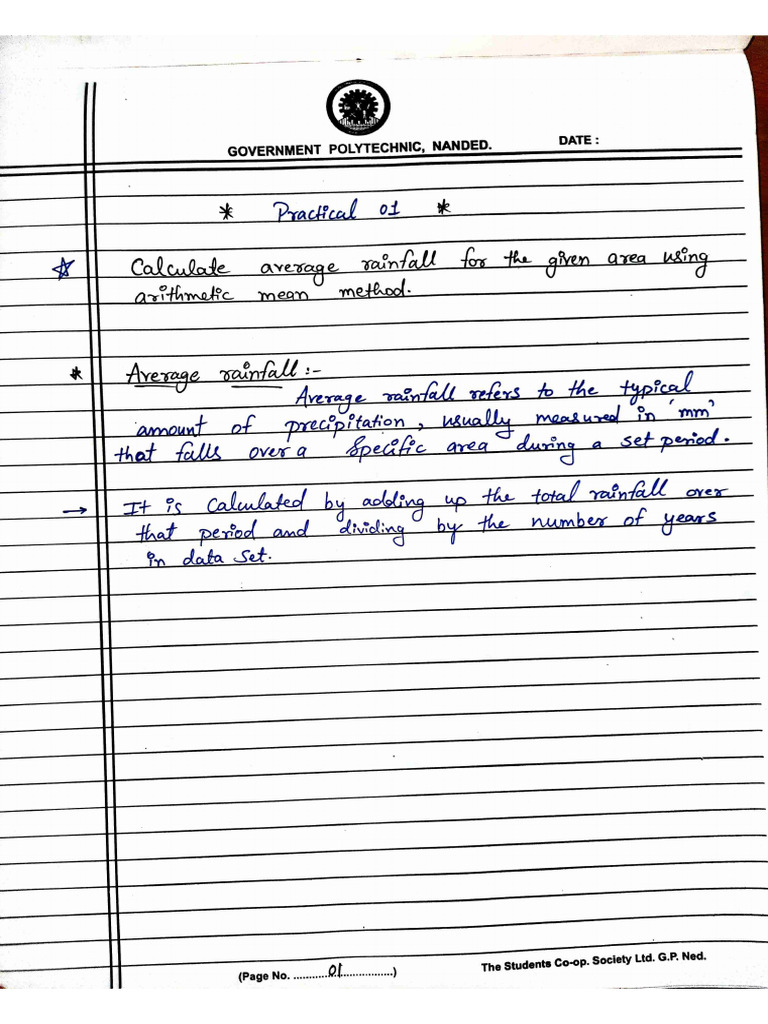 GOVERNMENT POLYTECHNIC, NANDED.
DATE :
* Practical 01 *
☆ Calculate average rainfall for the given area using
arithmetic mean method.
* Average rainfall :-
Average rainfall refers to the typical
amount of precipitation, usually measured in 'mm'
that falls over a specific area during a set period.
→ It is calculated by adding up the total rainfall over
that period and dividing by the number of years
in data set.
(Page No. ............01................)
The Students Co-op. Society Ltd. G.P. Ned.